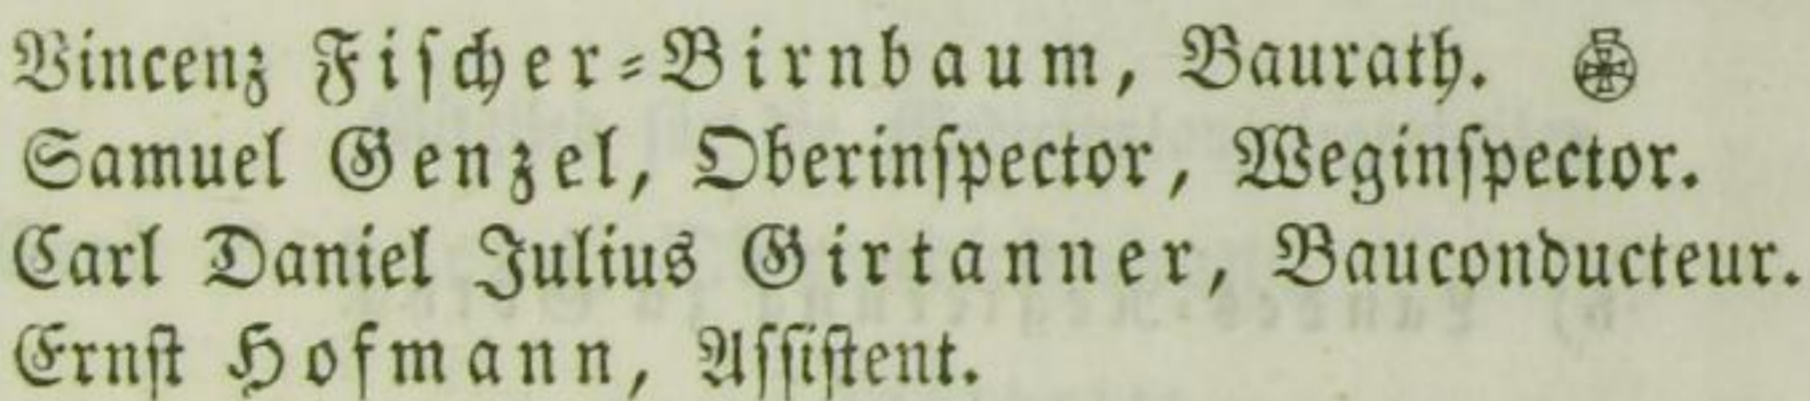 Vincenz Fiſcher-Birnbaum, Baurath.
Samuel Genzel, Oberinſpector, Weginſpector.
Carl Daniel Julius Girtanner, Bauconducteur.
Ernſt Hofmann, Aſſiſtent.